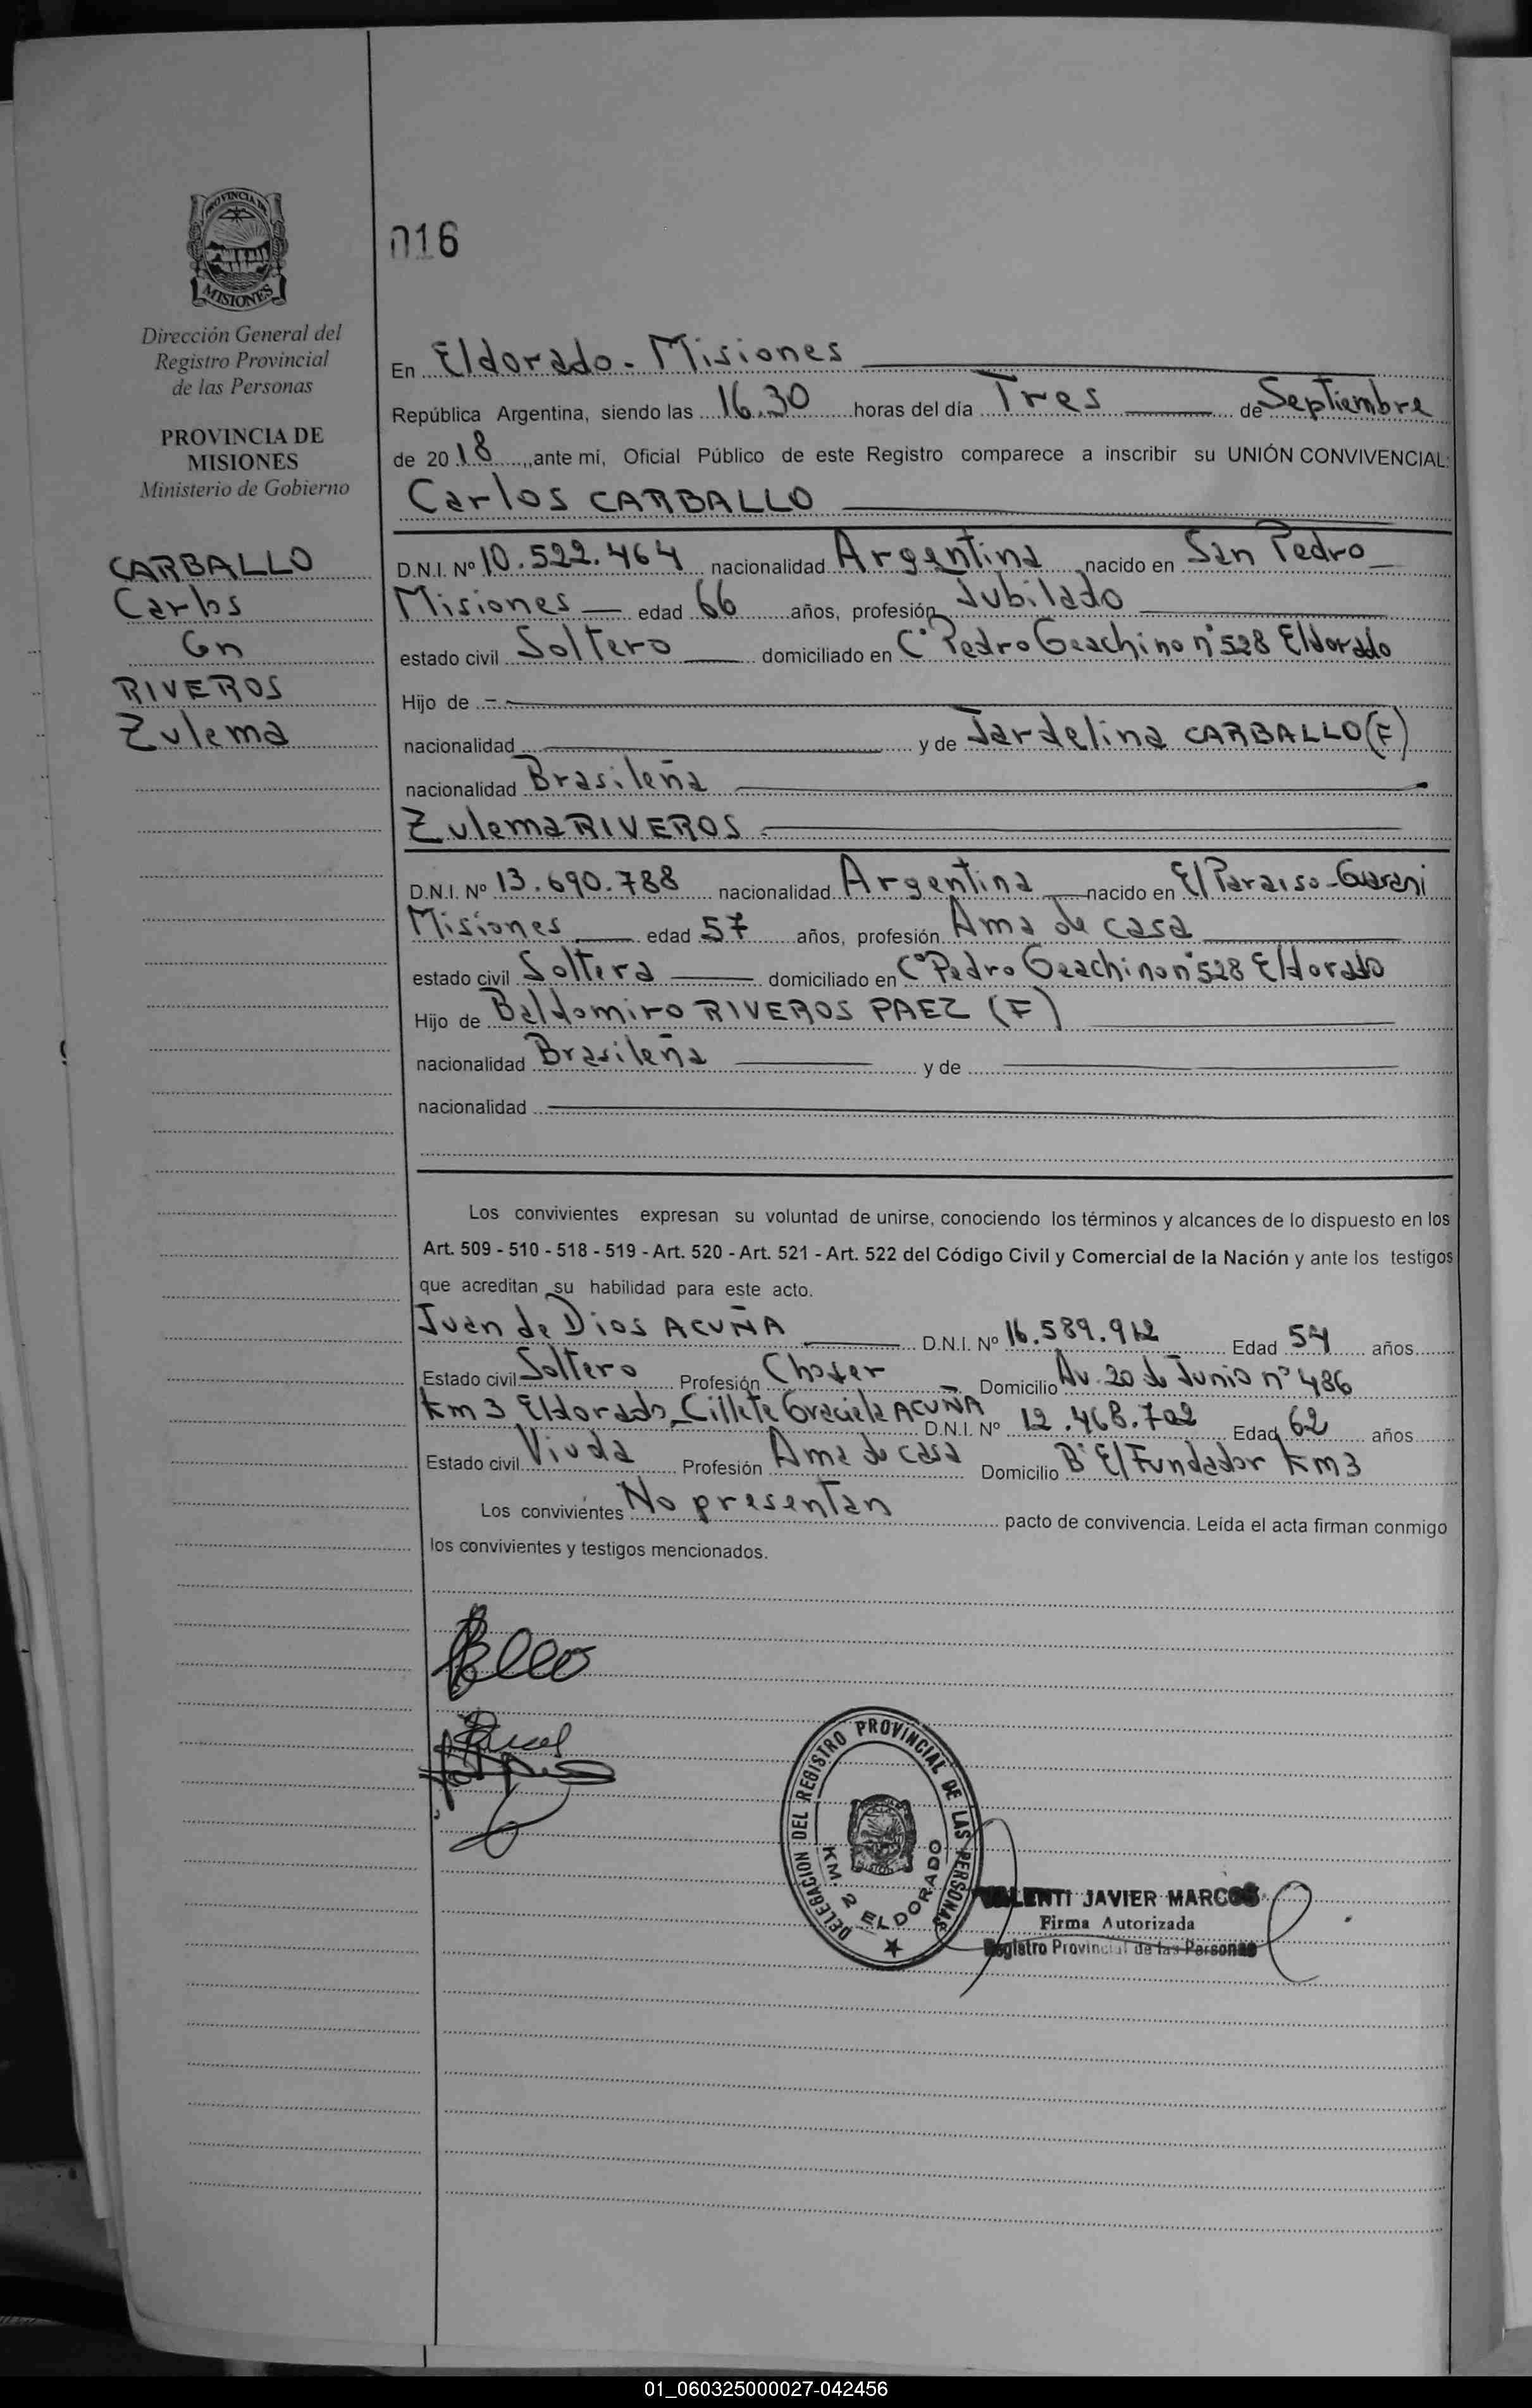 PROVINCIA DE
MISIONES
Dirección General del
Registro Provincial
de las Personas
PROVINCIA DE
MISIONES
Ministerio de Gobierno
CARBALLO
Carlos
Con
RIVEROS
Zulema
016
En Eldorado - Misiones
República Argentina, siendo las 16.30 horas del día Tres de Septiembre
de 2018, ante mí, Oficial Público de este Registro comparece a inscribir su UNIÓN CONVIVENCIAL:
Carlos CARBALLO
D.N.I. Nº 10.522.464 nacionalidad Argentina nacido en San Pedro
Misiones edad 66 años, profesión Jubilado
estado civil Soltero domiciliado en C° Pedro Geachino n° 528 Eldorado
Hijo de
nacionalidad y de Jardelina CARBALLO (F)
nacionalidad Brasileña
Zulema RIVEROS
D.N.I. Nº 13.690.788 nacionalidad Argentina nacido en El Paraiso - Guarani
Misiones edad 57 años, profesión Ama de casa
estado civil Soltera domiciliado en C° Pedro Geachino n° 528 Eldorado
Hijo de Baldomiro RIVEROS PAEZ (F)
nacionalidad Brasileña y de
nacionalidad
Los convivientes expresan su voluntad de unirse, conociendo los términos y alcances de lo dispuesto en los
Art. 509 - 510 - 518 - 519 - Art. 520 - Art. 521 - Art. 522 del Código Civil y Comercial de la Nación y ante los testigos
que acreditan su habilidad para este acto.
Juan de Dios ACUÑA D.N.I. Nº 16.589.912 Edad 54 años
Estado civil Soltero Profesión Chofer Domicilio Av. 20 de Junio n° 486
Km 3 Eldorado - Cillete Graciela ACUÑA D.N.I. Nº 12.468.702 Edad 62 años
Estado civil Viuda Profesión Ama de casa Domicilio B° El Fundador Km 3
Los convivientes No presentan pacto de convivencia. Leída el acta firman conmigo
los convivientes y testigos mencionados.
DELEGACION DEL REGISTRO PROVINCIAL DE LAS PERSONAS
KM. 2 ELDORADO
VALENTI JAVIER MARCOS
Firma Autorizada
Registro Provincial de las Personas
01_060325000027-042456